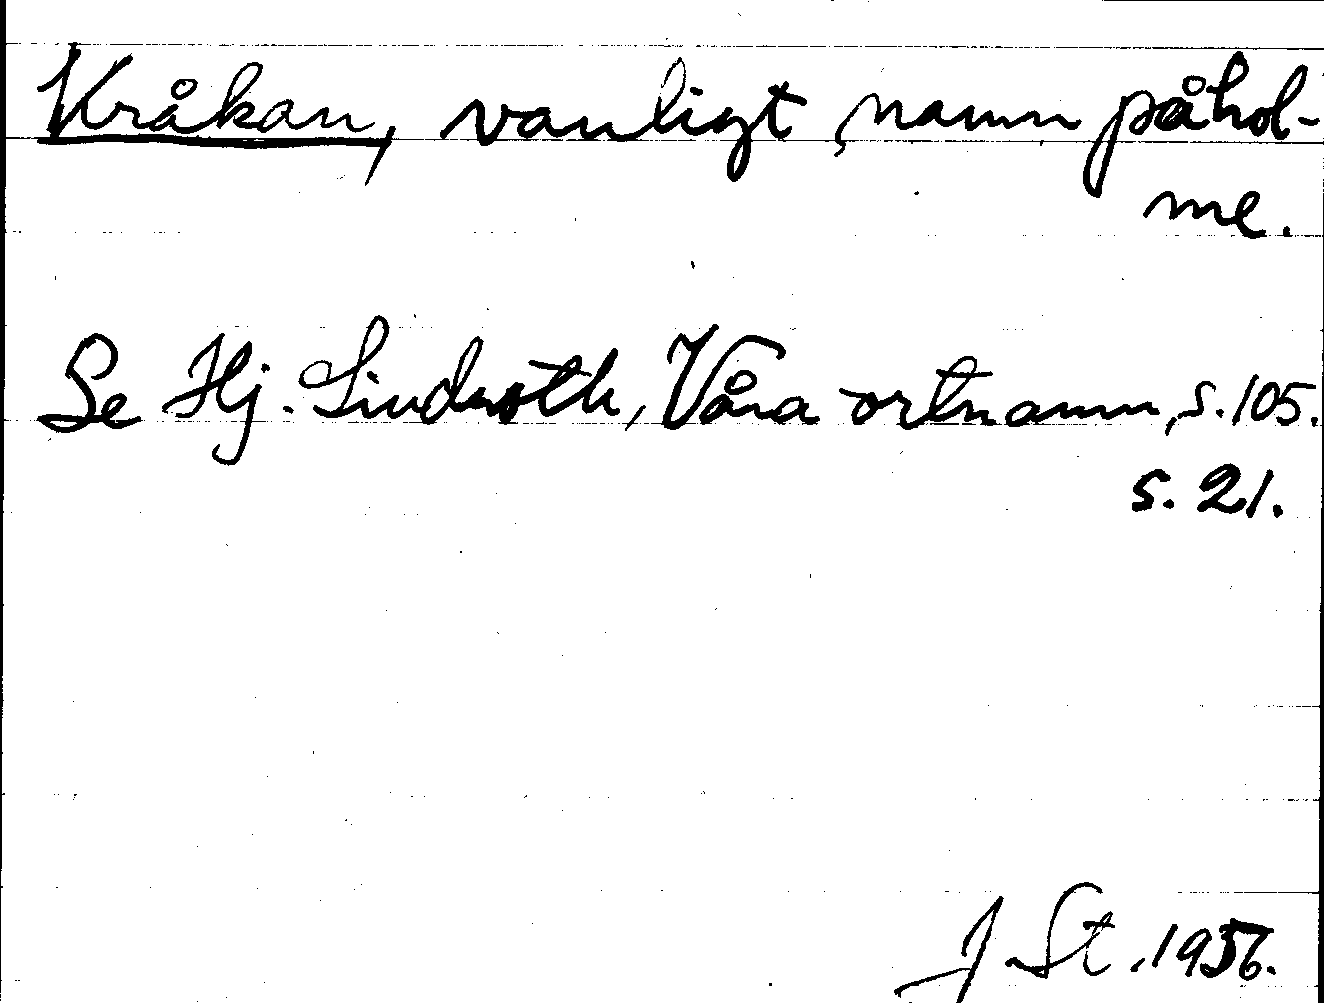 Kråkan, vanligt namn på hol-
me.
Se Hj. Lindroth, Våra ortnamn, s. 105.
s. 21.
J St. 1956.